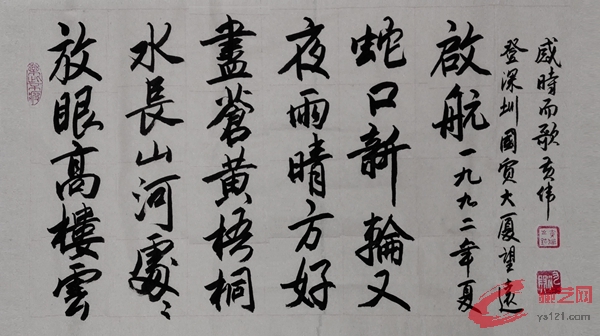 放眼高樓雲
水長山河處〻
盡蒼黃梧桐
夜雨晴方好
蛇口新輪又
啟航一九九二年夏
登深圳國貿大廈望遠
感時而歌 伟
艺网
ys121.com